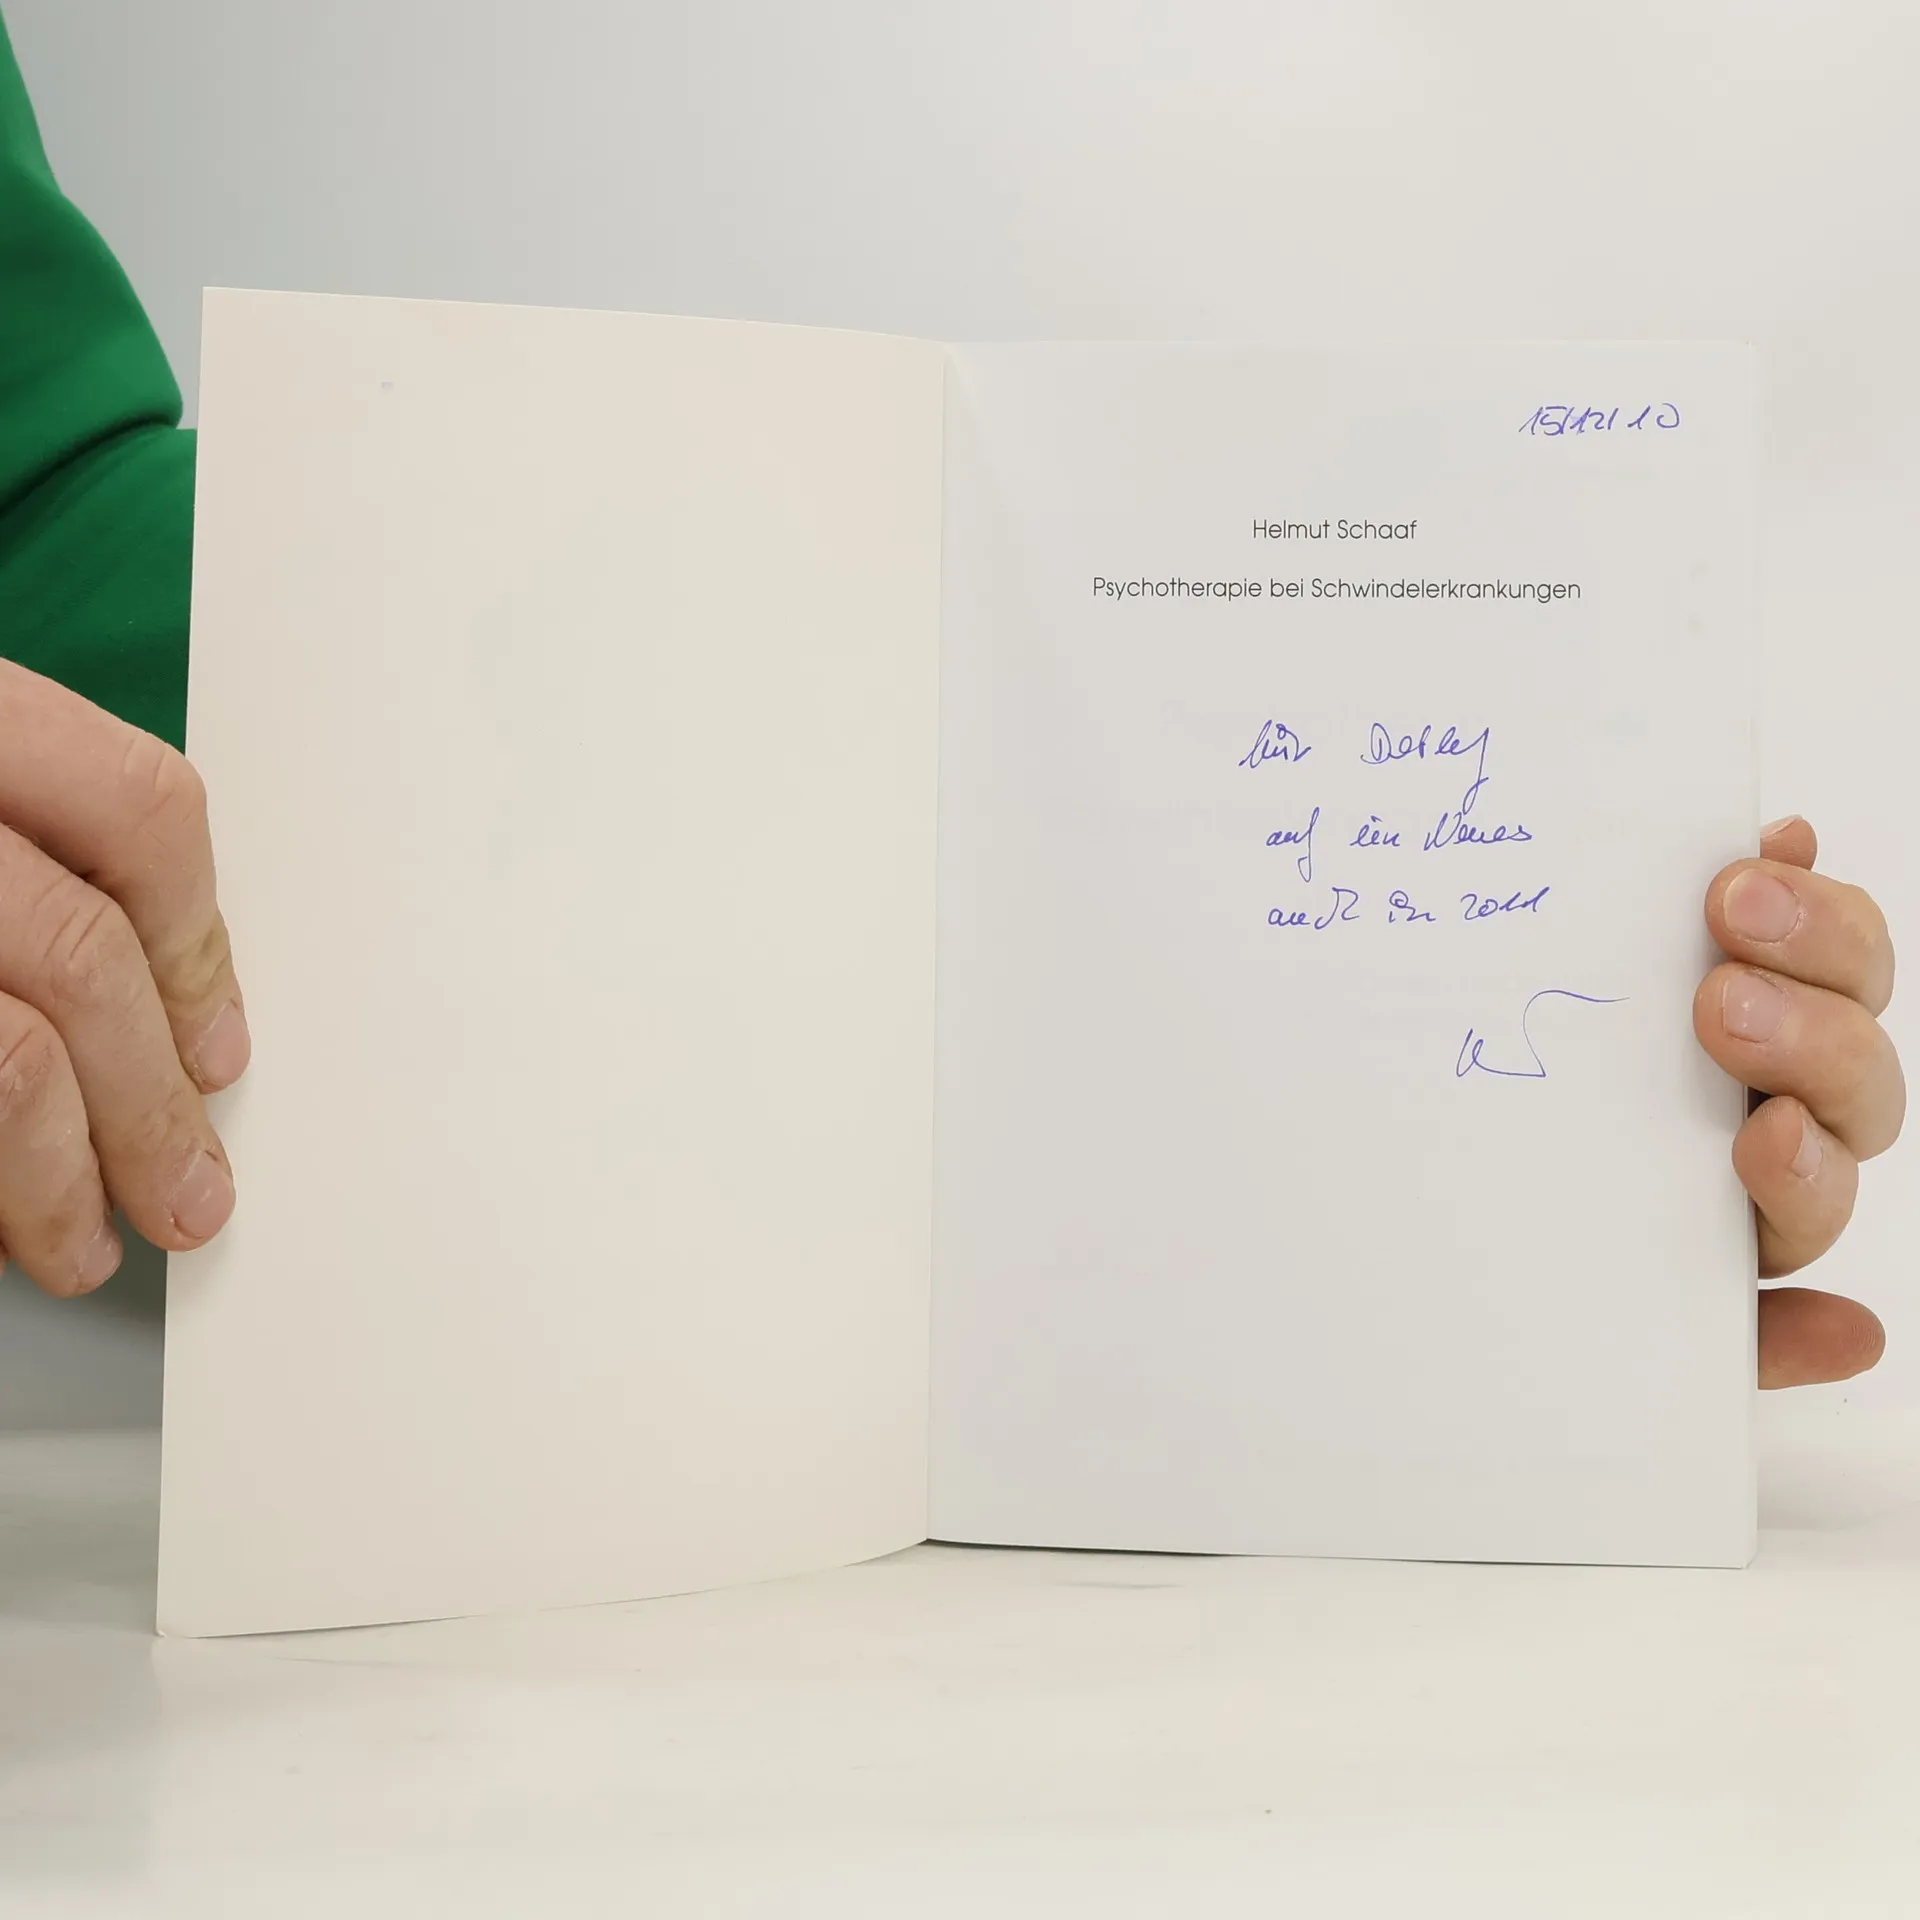 15/12/10
Helmut Schaaf
Psychotherapie bei Schwindelerkrankungen
für Detlef
auf ein Neues
auch in 2011